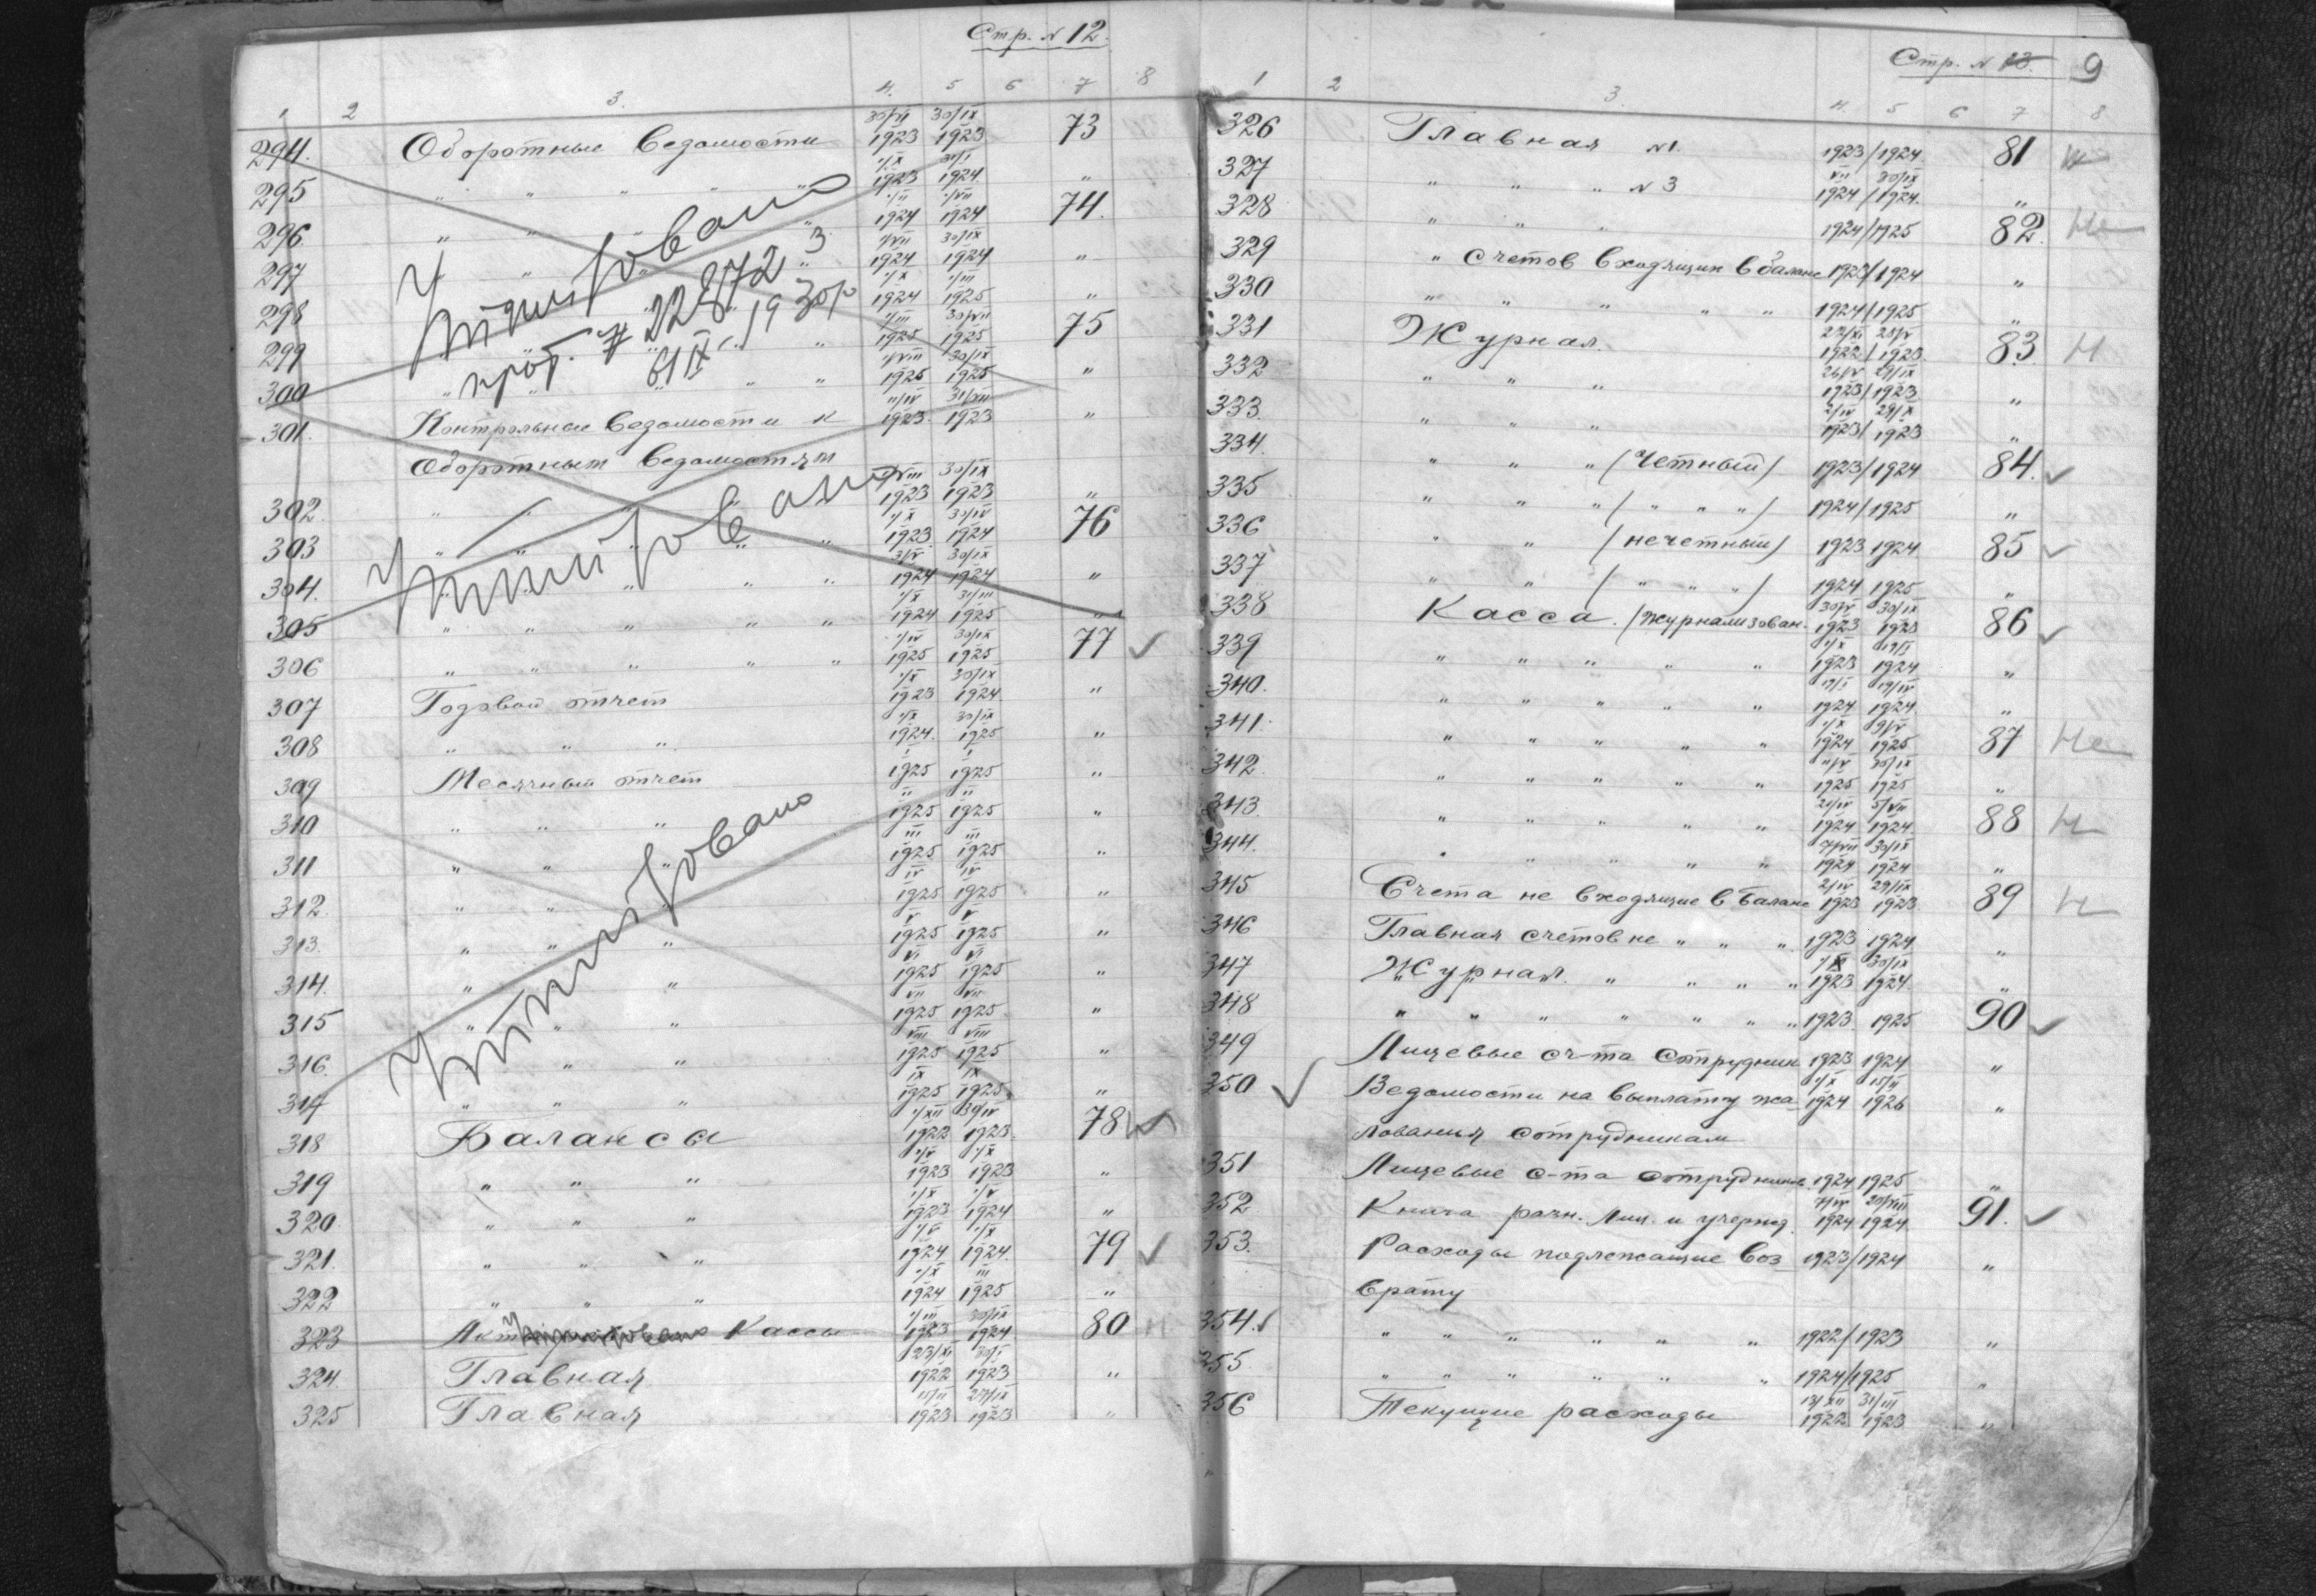 Стр. № 12.
1 2 3. 4. 5 6 7 8
294. Оборотные ведомости 30/VI 1923 30/IX 1923 73
295 " " " " " 1/X 1923 31/I 1924 "
296. " " " 1/II 1924 1/VII 1924 74.
297 " " " " 1/VII 1924 30/IX 1924 "
298 " " 1/X 1924 1/III 1925 "
299 " " " 1/III 1925 30/VII 1925 75
300 " " " " " 1/VIII 1925 30/IX 1925 "
Утилизовано
прот. № 22872 3
61 IX 1930 р
301. Контрольные ведомости к 11/IV 1923. 31/VII 1923 "
Оборотным ведомостям
302. " " " 1/VIII 1923 30/IX 1923 "
303 " " " " " 1/X 1923 30/IV 1924 76
304. " " " " " 3/V 1924 30/IX 1924 "
305 " " " " " 1/X 1924 31/III 1925 "
Утилизовано
306 " " " " " 1/IV 1925 30/IX 1925 77 ✓
307 Годовой отчет 1/X 1923 30/IX 1924. "
308 " " " 1/X 1924. 30/IX 1925 "
309 Месячный отчет I 1925 I 1925 "
310 " " " II 1925 II 1925 "
311 " " " III 1925 III 1925 "
312. " " " IV 1925 IV 1925 "
313. " " " V 1925 V 1925 "
314. " " VI 1925 VI 1925 "
315 " " " VII 1925 VII 1925 "
316. " " VIII 1925 VIII 1925 "
317 " " " IX 1925 IX 1925 "
Утилизовано
318 Балансы 1/XII 1922 30/IV 1923. 78 ✓
319 " " " 1/V 1923 1/X 1923 "
320. " " " 1/X 1923 1/V 1924 "
321. " " " 1/V 1924 1/X 1924. 79 ✓
322 " " " 1/X 1924 III 1925 "
323 Утилизовано Кассы 1/III 1923 30/IX 1924 80
324. Главная 23/XI 1922 30/I 1923 "
325 Главная 15/II 1923 29/IX 1923 "
Стр. № 13. 9
1 2 3. 4. 5 6 7 8
326 Главная №1. 1923/1924 81 н
327 " " " №3 VII 1924/30/IX 1924. "
328 " " " 1924/1925 82. Не
329 " счетов входящих в баланс 1923/1924 "
330 " " " " " 1924/1925 "
331 Журнал. 22/XI 1922/25/V 1923 83 Н
332 " " " 26/V 1923/29/IX 1923 "
333. " " " 2/IV 1923/29/X 1923 "
334. " " " (Четный) 1923/1924 84. ✓
335 " " " (" " ") 1924/1925 "
336 " " (нечетный) 1923 1924. 85 ✓
337 " " (" " ") 1924 1925 "
338 Касса. (журнализован. 30/V 1923 30/IX 1923 86 ✓
339 " " " " " 1/X 1923 19/I 1924 "
340. " " " " " 19/I 1924 19/IV 1924. "
341. " " " " " 1/X 1924 9/V 1925 87 Не
342. " " " " " 11/V 1925 30/IX 1925 "
343. " " " " " 21/IV 1924 5/VII 1924. 88 Н
344. " " " " " 7/VII 1924 30/IX 1924 "
345 Счета не входящие в баланс 2/IV 1923 29/IX 1923 89 Н
346 Главная счетов не " " " 1923 1924. "
347 Журнал. " " " " 1/X 1923 30/IX 1924. "
348 " " " " " " " 1923. 1925 90 ✓
349 Лицевые сч-та Сотрудник 1923 1924 "
350 ✓ Ведомости на выплату жа- 1/X 1924 15/II 1926 "
лования сотрудникам
351 Лицевые с-та сотрудников. 1924 1925 "
352 Книга разн. лиц. и учережд. 7/IV 1924 20/VIII 1924. 91. ✓
353. Расходы подлежащие воз 1923/1924 "
врату
354. " " " " " " 1922/1923 "
355 " " " " " " 1924/1925 "
356 Текущие расходы 13/XII 1922 31/III 1923 "